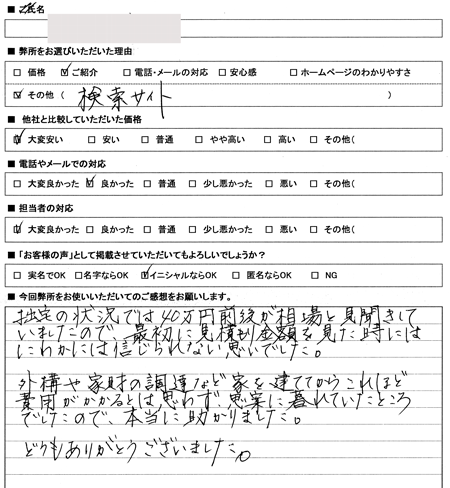 ■ 氏名
■ 弊所をお選びいただいた理由
□ 価格 ☑ ご紹介 □ 電話・メールの対応 □ 安心感 □ ホームページのわかりやすさ
☑ その他 ( 検索サイト )
■ 他社と比較していただいた価格
☑ 大変安い □ 安い □ 普通 □ やや高い □ 高い □ その他(
■ 電話やメールでの対応
□ 大変良かった ☑ 良かった □ 普通 □ 少し悪かった □ 悪い □ その他(
■ 担当者の対応
☑ 大変良かった □ 良かった □ 普通 □ 少し悪かった □ 悪い □ その他(
■ 「お客様の声」として掲載させていただいてもよろしいでしょうか?
□ 実名でOK □ 名字ならOK ☑ イニシャルならOK □ 匿名ならOK □ NG
■ 今回弊所をお使いいただいてのご感想をお願いします。
の状況では40万円前後が相場と見聞きして
いましたので、最初に見積り金額を見た時には
にわかには信じられない思いでした。
外構や家財の調達など家を建ててからこれほど
費用がかかるとは思わず、思案に暮れていたところ
でしたので、本当に助かりました。
どうもありがとうございました。